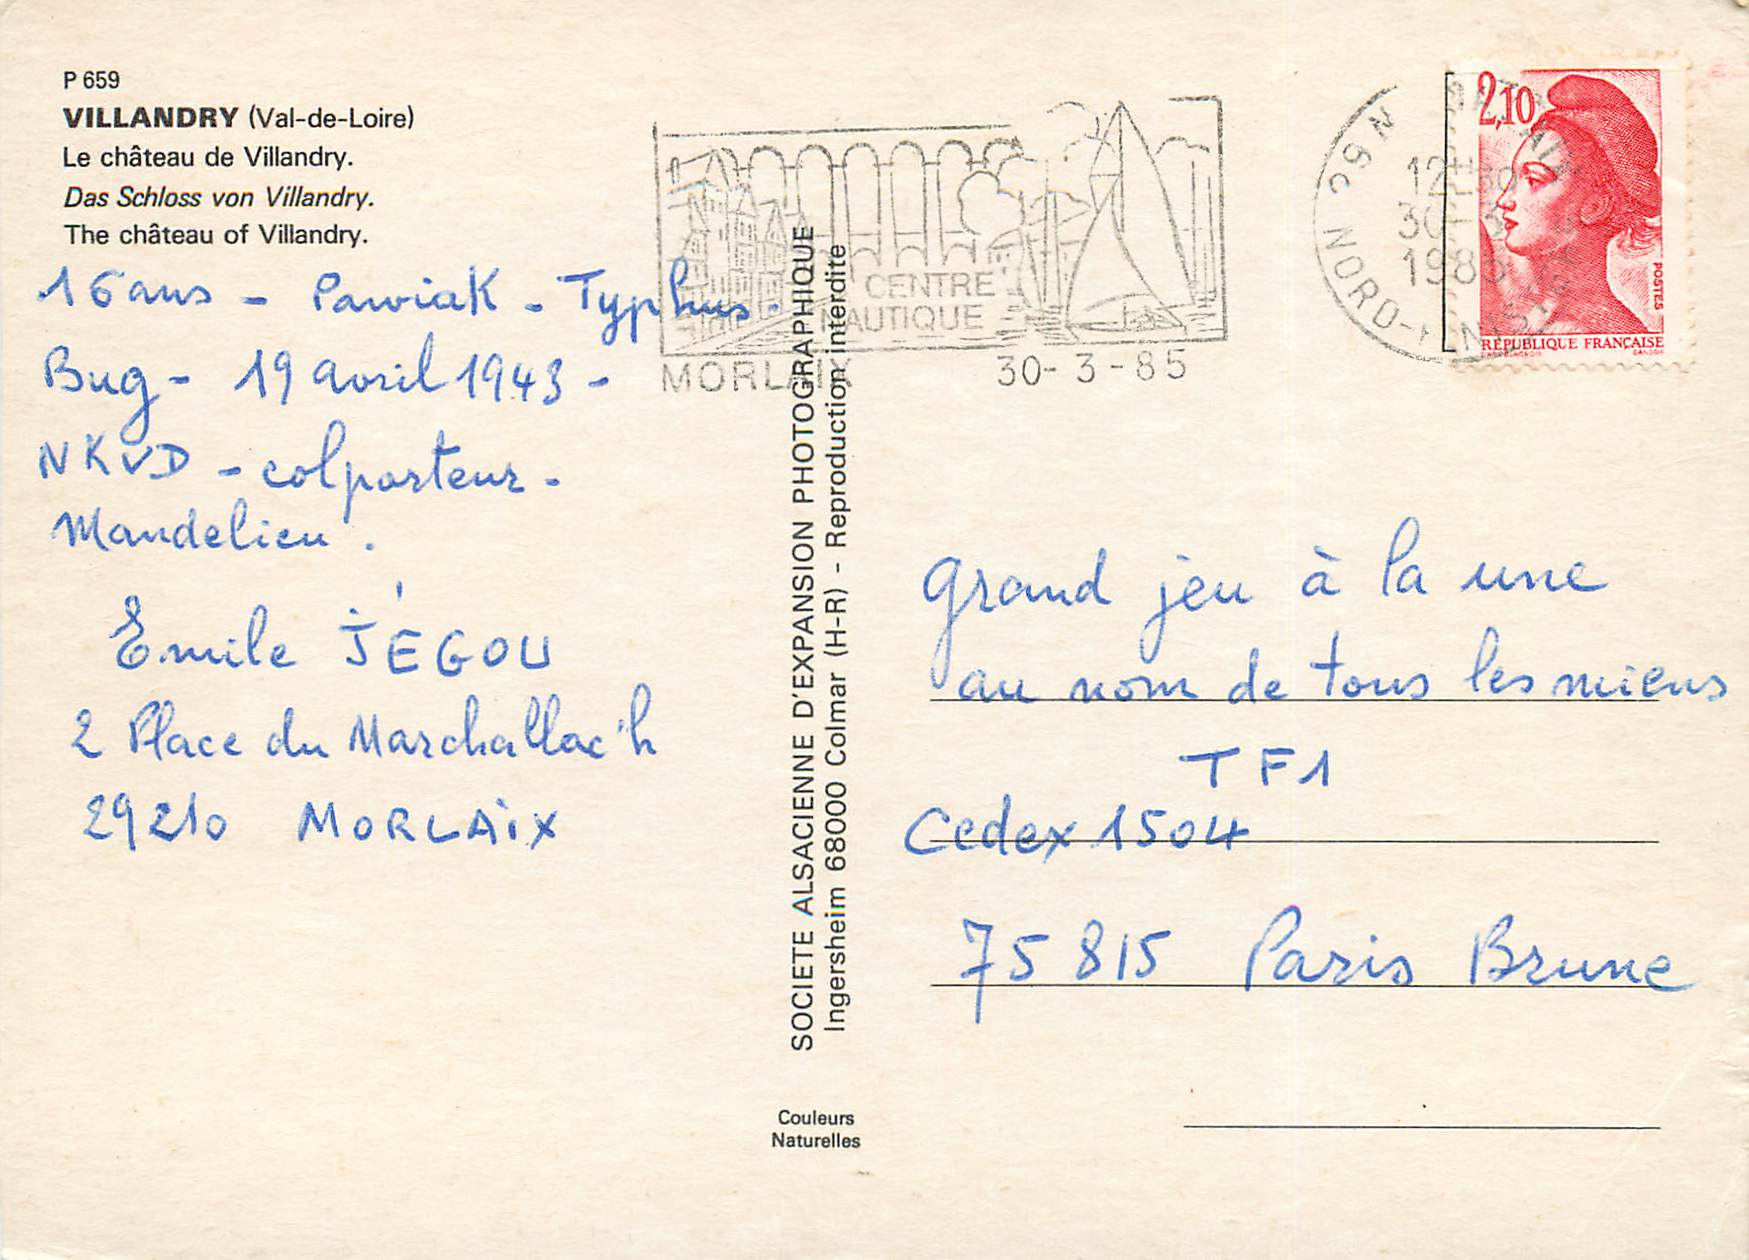 P 659
VILLANDRY (Val-de-Loire)
Le château de Villandry.
Das Schloss von Villandry.
The château of Villandry.
16 ans - Pawiak - Typhus.
Bug - 19 avril 1943 -
NKVD - colporteur -
Mandelieu.
Emile JÉGOU
2 Place du Marchallac'h
29210 MORLAIX
SOCIETE ALSACIENNE D'EXPANSION PHOTOGRAPHIQUE
Ingersheim 68000 Colmar (H-R) - Reproduction interdite
Couleurs
Naturelles
CENTRE
NAUTIQUE
MORLAIX 30-3-85
12H30
30-3
1985
NORD-FINISTERE
2,10
POSTES
RÉPUBLIQUE FRANÇAISE
GANDON
grand jeu à la une
au nom de tous les miens
TF1
Cedex 1504
75815 Paris Brune